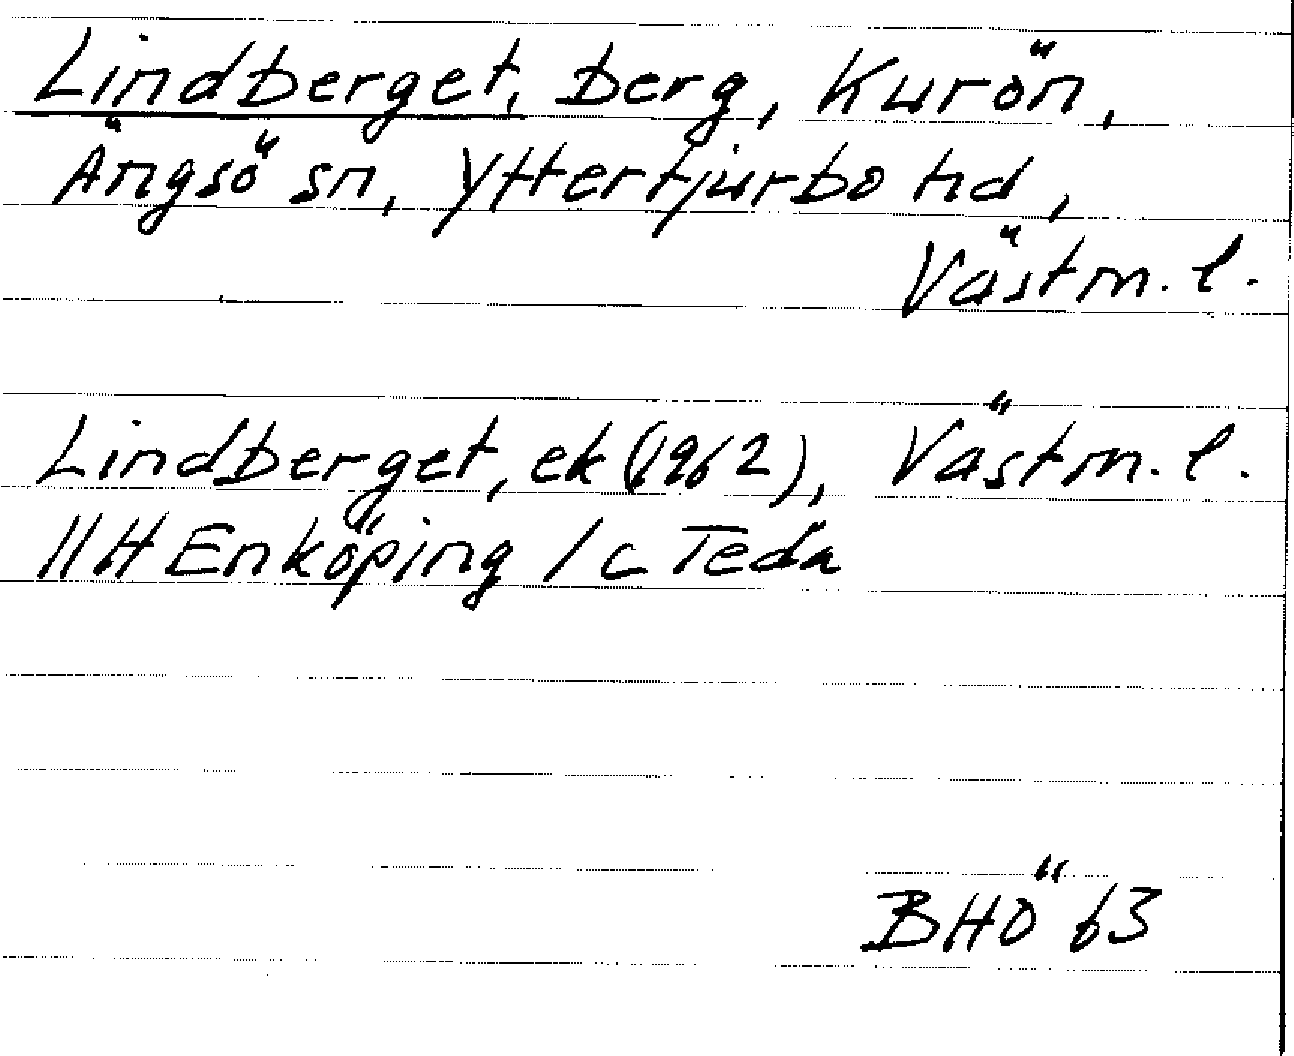 Lindberget, berg, Kurön,
Ängsö sn, Yttertjurbo hd,
Västm. l.
Lindberget, ek (1962), Västm. l.
11H Enköping 1c Teda
BHÖ 63